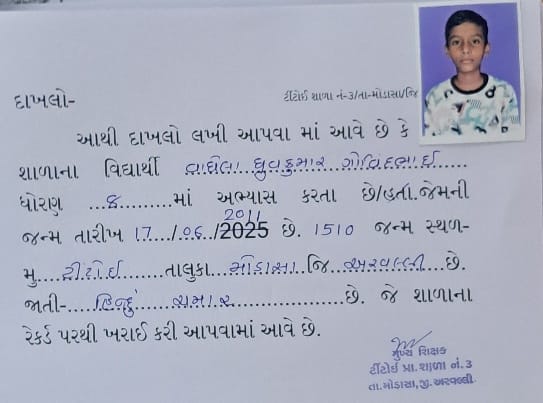 ટીંટોઈ શાળા નં-૩/તા-મોડાસા/જિ
દાખલો-
આથી દાખલો લખી આપવા માં આવે છે કે
શાળાના વિદ્યાર્થી વાઘેલા ધ્રુવકુમાર ગોવિંદભાઈ
ધોરણ ...૪.........માં અભ્યાસ કરતા છે/હતા.જેમની
2011
જન્મ તારીખ 17.../06.../2025 છે. 1510 જન્મ સ્થળ-
મુ....ટીંટોઈ.......તાલુકા...મોડાસા..જિ...અરવલ્લી...છે.
જાતી-....હિન્દુ ચમાર..................છે. જે શાળાના
રેકર્ડ પરથી ખરાઈ કરી આપવામાં આવે છે.
મુખ્ય શિક્ષક
ટીંટોઈ પ્રા.શાળા નં.૩
તા.મોડાસા,જી.અરવલ્લી.